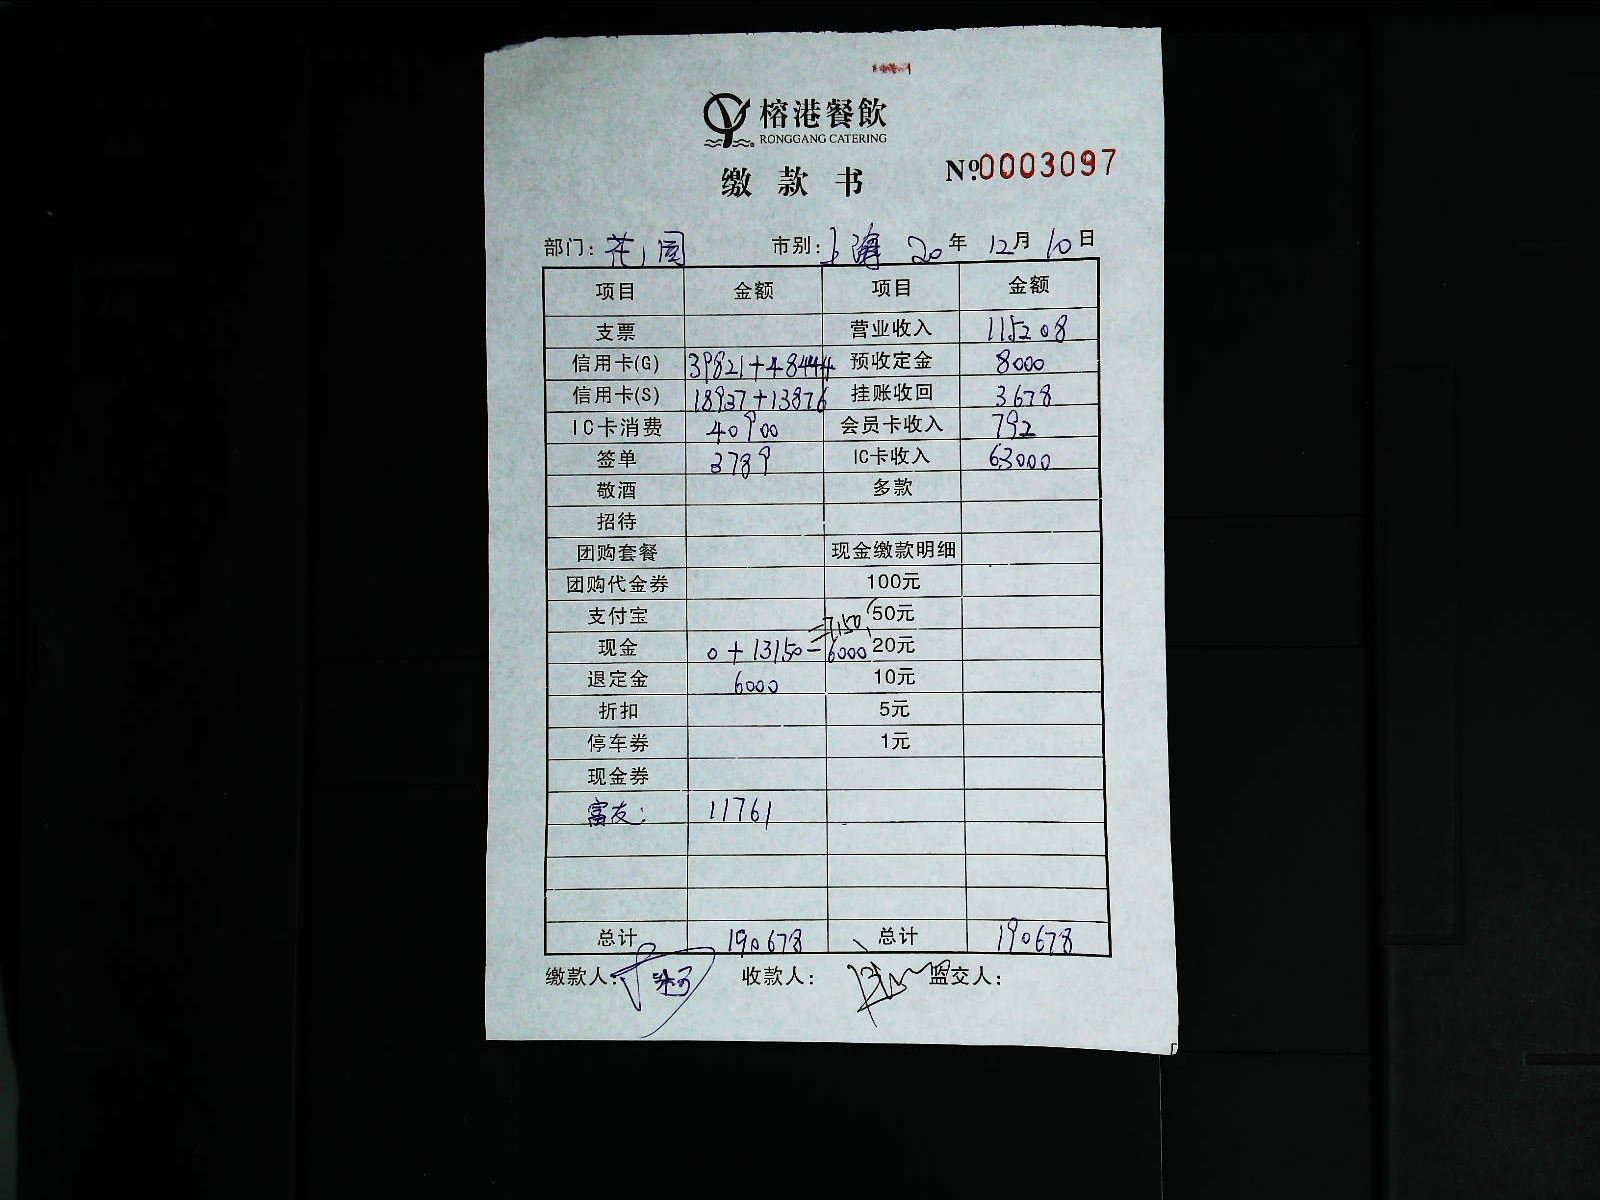 榕港餐飲
RONGGANG CATERING
缴款书 №0003097
部门: 花园 市别: 上海 20年 12月 10日
项目 金额 项目 金额
支票 营业收入 115208
信用卡(G) 39821+48444 预收定金 8000
信用卡(S) 18937+13876 挂账收回 3678
IC卡消费 40900 会员卡收入 792
签单 3789 IC卡收入 63000
敬酒 多款
招待
团购套餐 现金缴款明细
团购代金券 100元
支付宝 50元
现金 0+13150-6000=7150 20元
退定金 6000 10元
折扣 5元
停车券 1元
现金券
富友: 11761
总计 190678 总计 190678
缴款人: 收款人: 监交人: